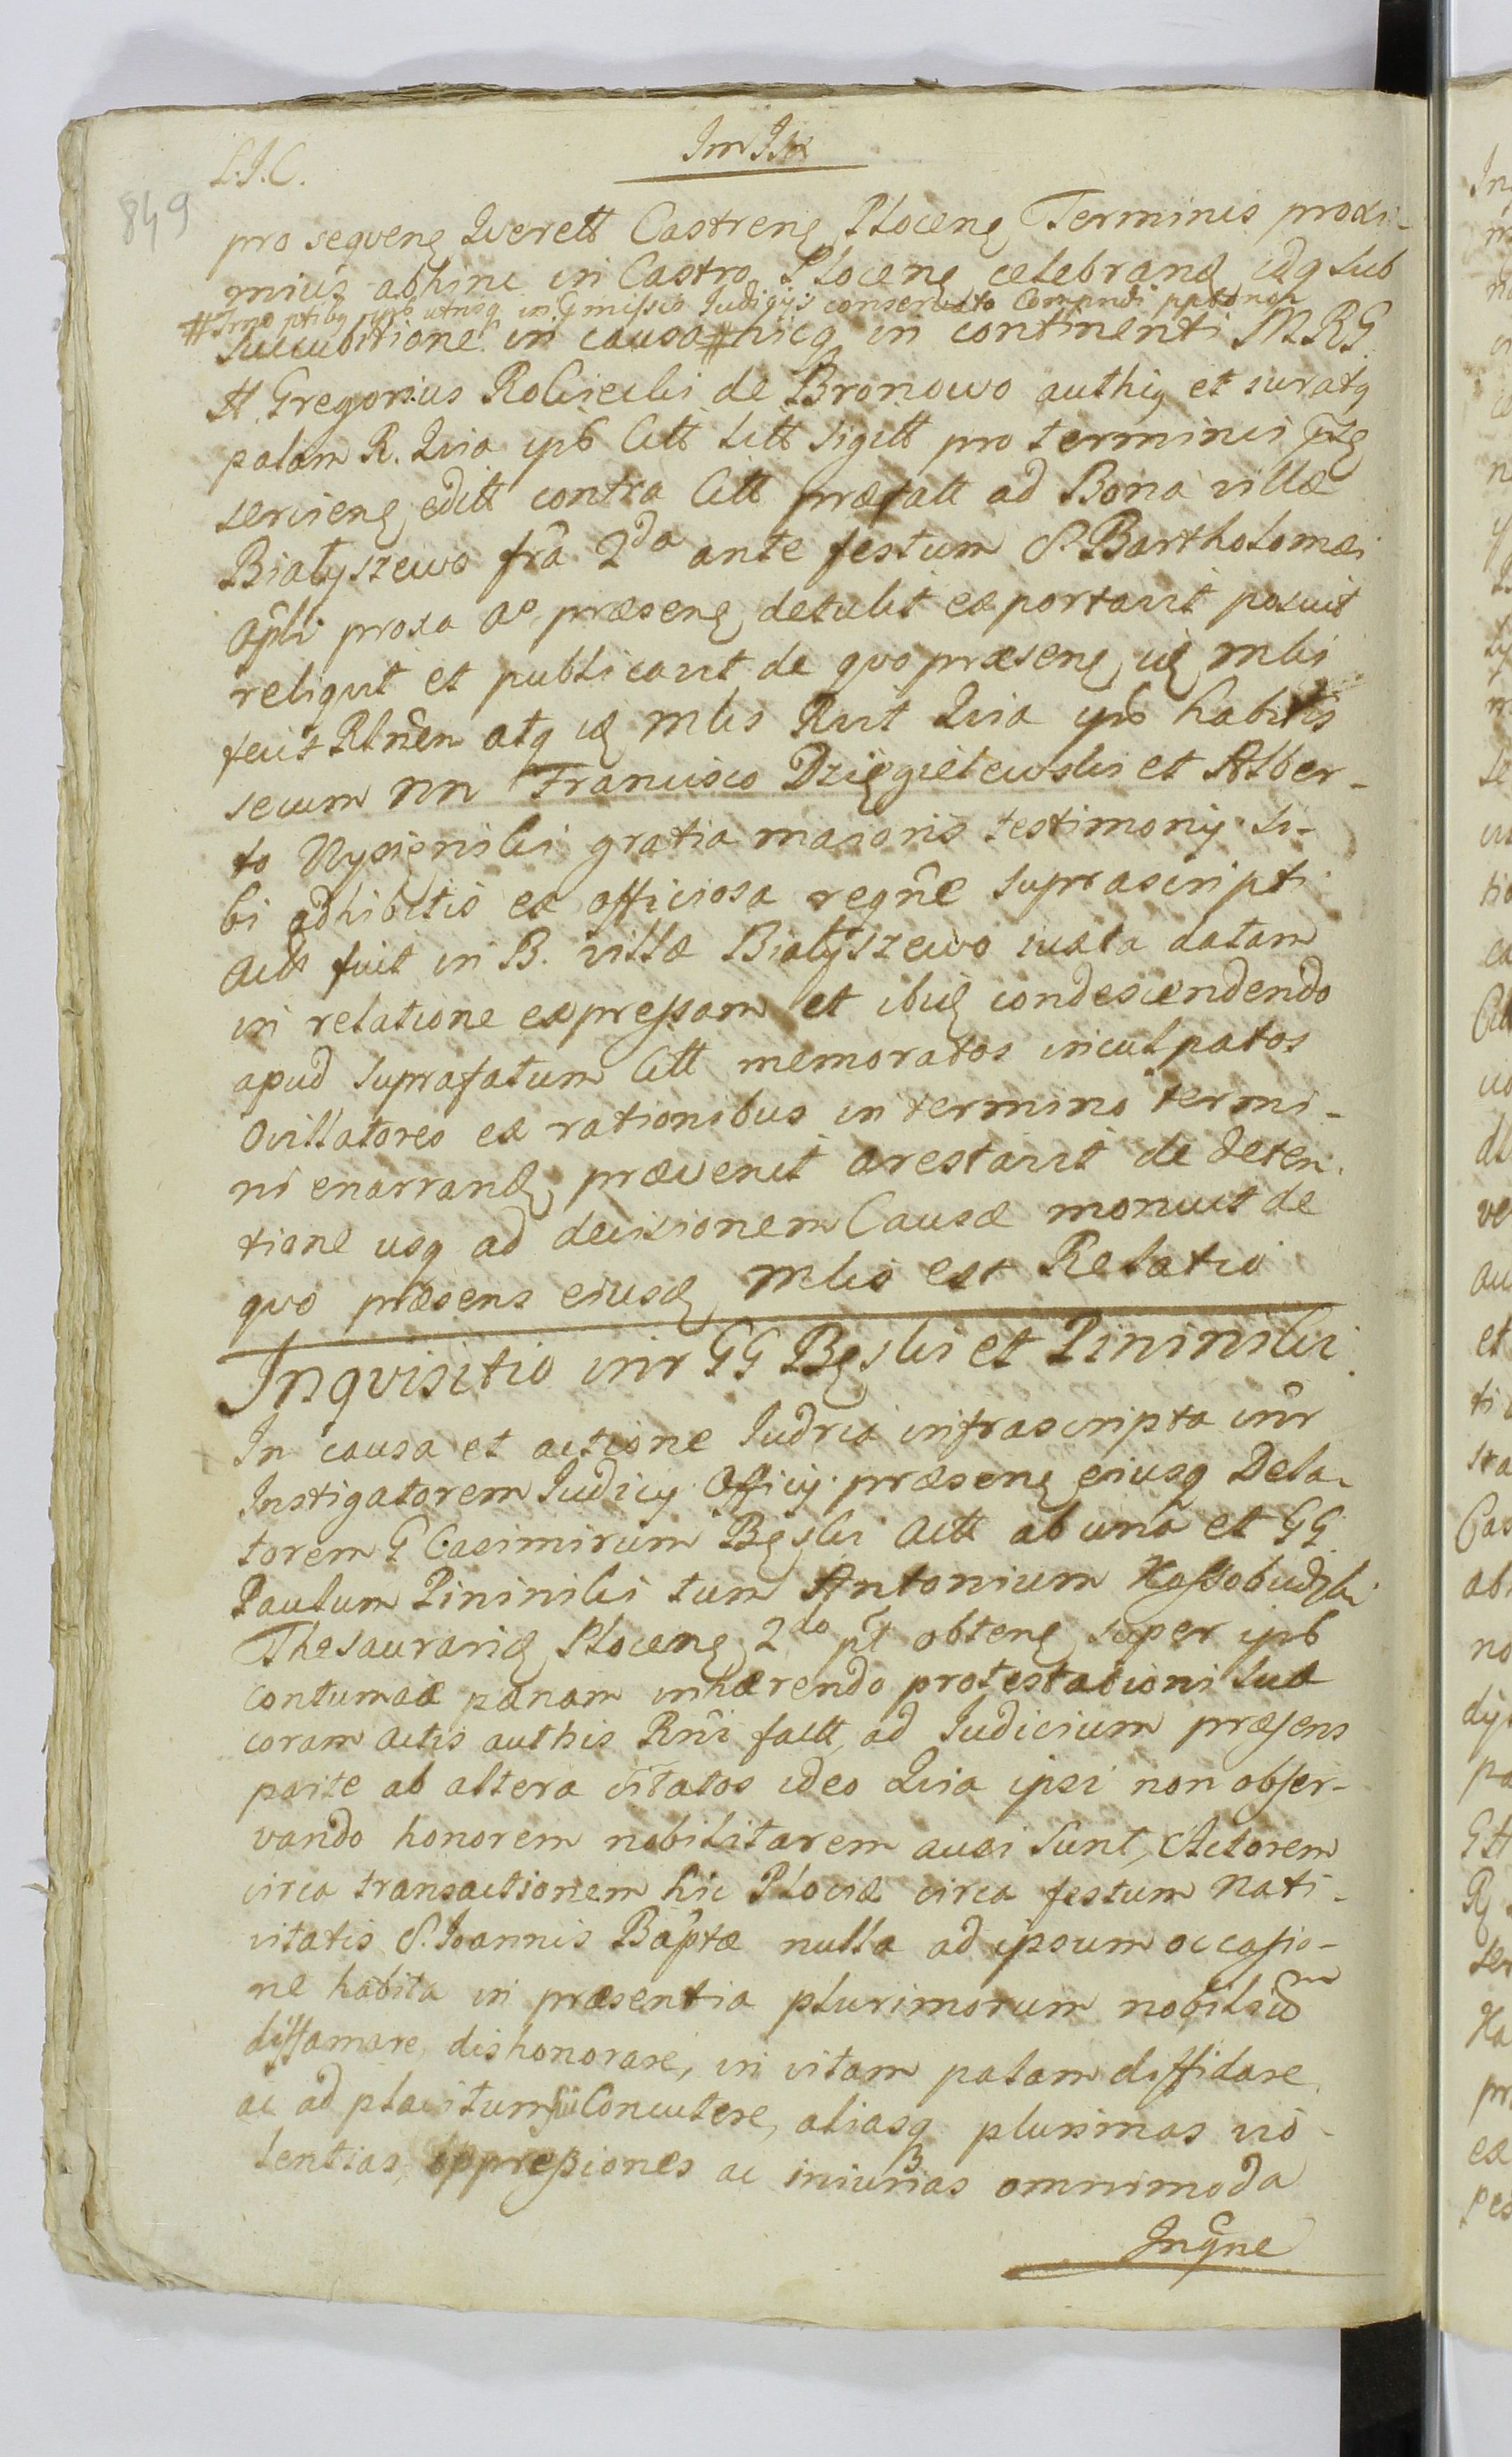 L.I.C.
849
pro seqveng Qverell Castreng Ploceng Terminis proxi-
mius abhinc in Castro Ploceng celebrand idq sub
# utrisq in Judicijs conservato
succubitione in causa # hicq in continenti MRG
A. Gregorius Rościecki de Bronowo authiq et iuratq
palam R. Qvia ipse Citt litt sigill pro terminis
servieng editt contra Citt præfatt ad Bona villæ
Białyszewo fra 2da ante festum S. Bartholomæi
Apli proxa Ao præseng detulit exportavit posuit
reliqvit et publicavit de qvo præseng mlis
fecit Rlnem atq id mlis Rvit Qvia ipse habitis
secum NN Francisco Dzięgielewski et Alber-
to Nysiенski gratia maioris testimonij si-
bi adhibitis ex officiosa reqne suprascripti
Actt fuit in B. villæ Białyszewo iuxta datam
in relatione expressam et ibiq condescendendo
apud suprafatum Citt memoratos inculpatos
Ovillatores ex rationibus in termino termi-
ni enarrand prævenit arestavit de deten-
tione usq ad decisionem Causæ monuit de
qvo præsens eiusd mlis est Relatio
Inqvisitio inr GG Bęski et Pininski
In causa et actione Iudria infrascripta inr
Instigatorem Iudicij Officij præseng eiusq Dela-
torem G Casimirum Bęski Actt ab una et GG
Paulum Pininski tum Antonium Kossobudzki
Thesaurarid Ploceng 2do pt obteng super ipso
contumaciæ pænam inhærendo protestationi suæ
coram actis authis Rni factt, ad Iudicium præsens
parte ab altera citatos ideo Qvia ipsi non obser-
vando honorem nobilitarem ausi sunt, Actorem
circa transactionem hic Plociæ circa festum nati-
vitatis S. Ioannis Baptæ nulla ad ipsum occasio-
ne habita in præsentia plurimorum nobilium
diffamare, dishonorare, in vitam palam diffidare
ac ad placitum sui Concutere, aliasq plurimas vio-
lentias, oppressiones ac iniurias omnimoda
Inqne